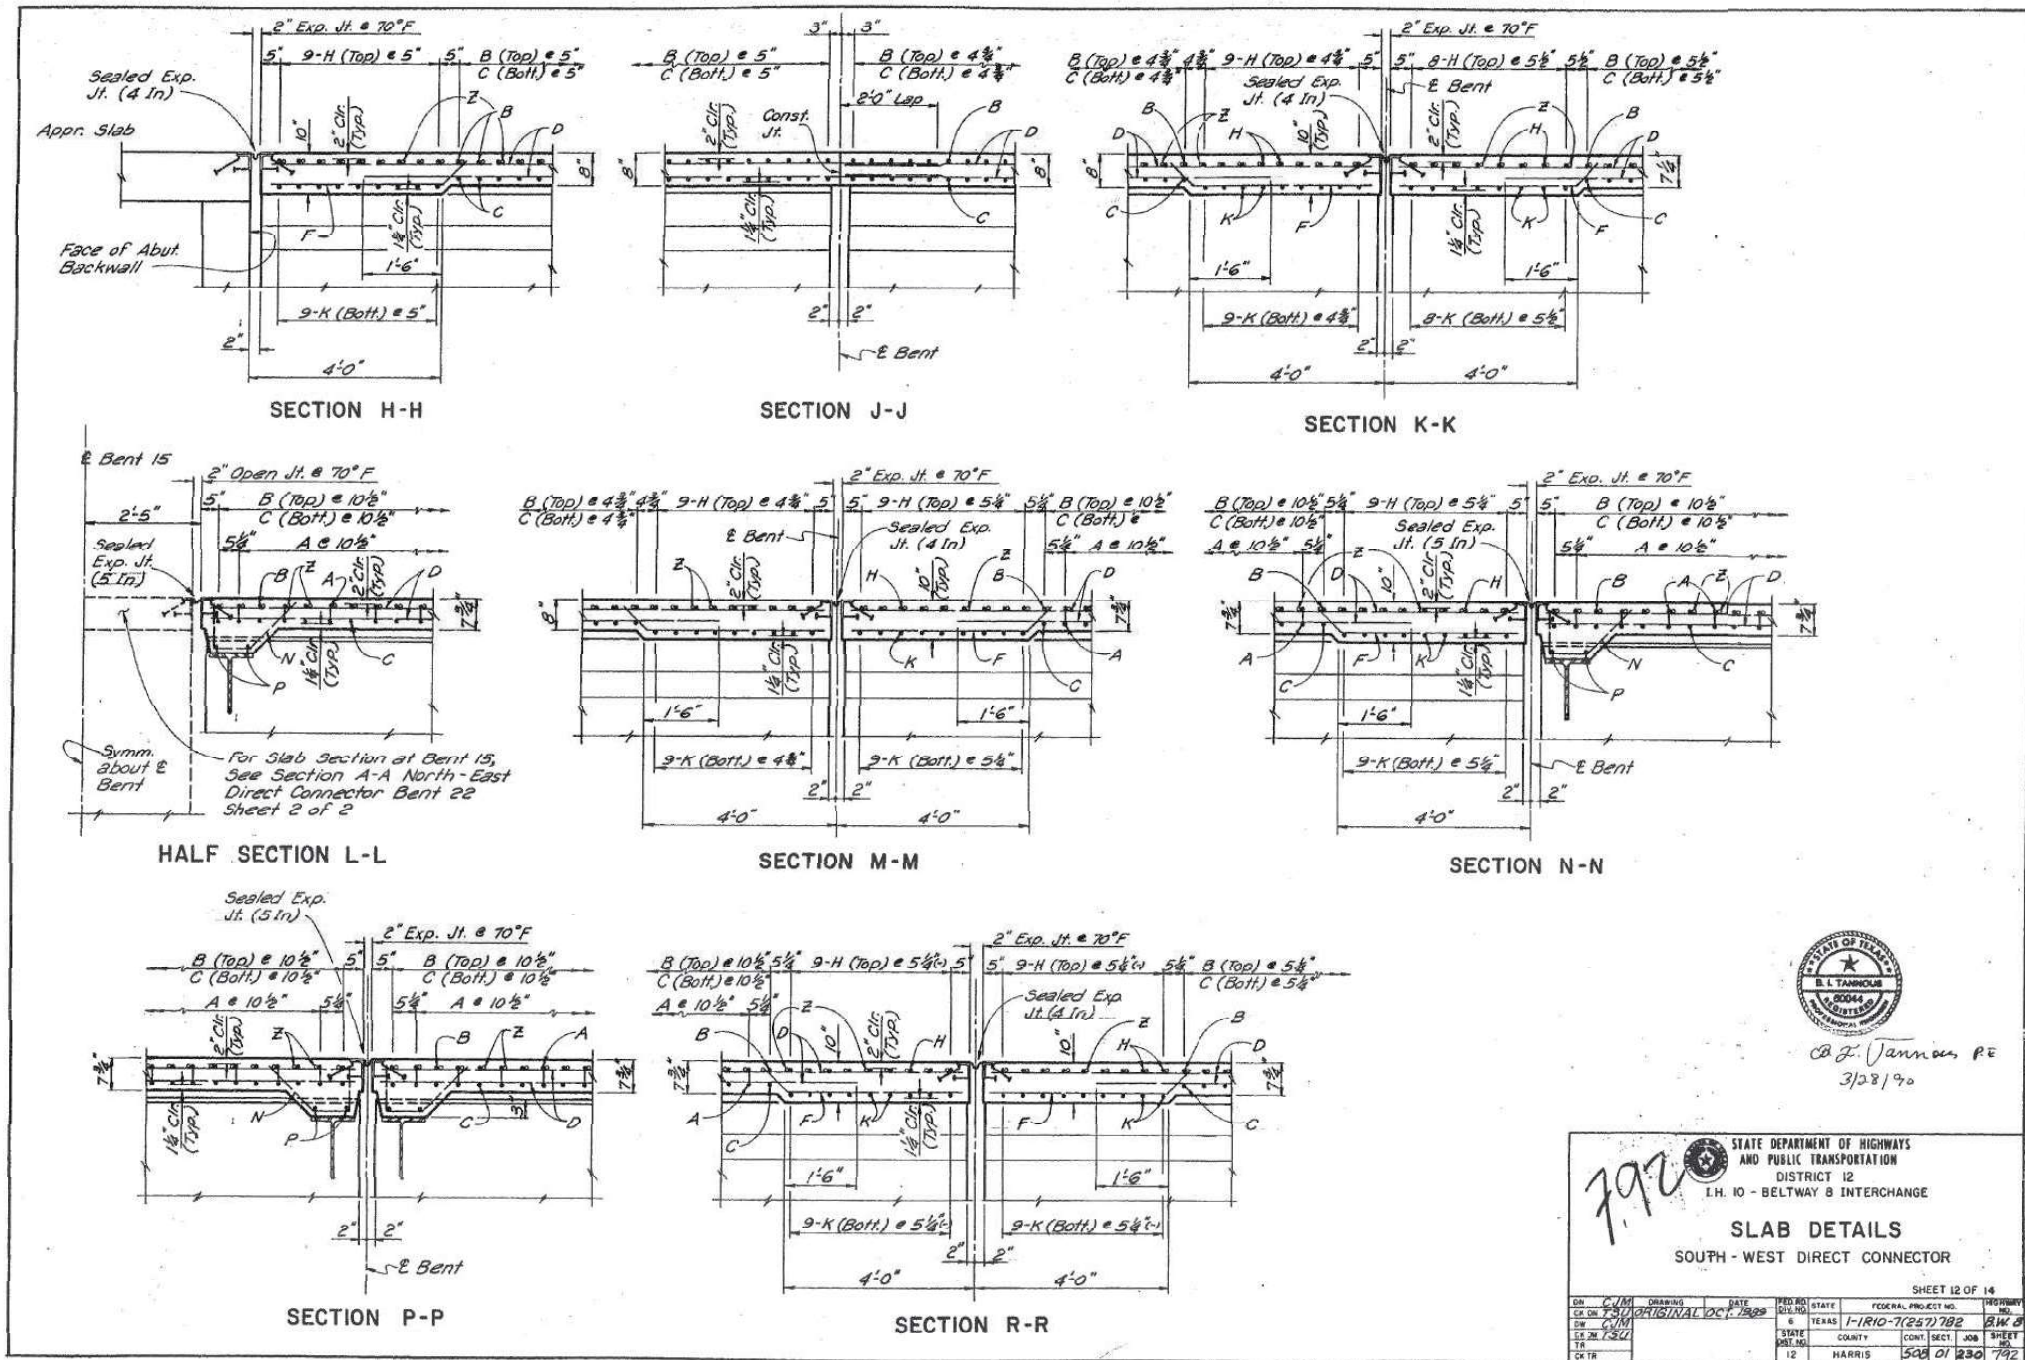 2" Exp. Jt. @ 70°F
5" 9-H (Top) @ 5" 5" B (Top) @ 5"
C (Bott.) @ 5"
Sealed Exp.
Jt. (4 In)
Appr. Slab
10"
2" Clr.
(Typ.)
Z
B
D
8"
C
F
1¼" Clr.
(Typ.)
Face of Abut.
Backwall
1'-6"
9-K (Bott.) @ 5"
2"
4'-0"
SECTION H-H
3" 3"
B (Top) @ 5" B (Top) @ 4¾"
C (Bott.) @ 5" C (Bott.) @ 4¾"
2'-0" Lap
2" Clr.
(Typ.)
Const.
Jt.
B
D
8" 8"
C
1¼" Clr.
(Typ.)
2" 2"
℄ Bent
SECTION J-J
2" Exp. Jt. @ 70°F
B (Top) @ 4¾" 4¾" 9-H (Top) @ 4¾" 5" 5" 8-H (Top) @ 5½" 5½" B (Top) @ 5½"
C (Bott.) @ 4¾" C (Bott.) @ 5½"
Sealed Exp.
Jt. (4 In)
℄ Bent
B Z H 10" 2" Clr. (Typ.) Z H B
D D
8" 7¼"
C K F K F C
1¼" Clr.
(Typ.)
1'-6" 1'-6"
9-K (Bott.) @ 4¾" 8-K (Bott.) @ 5½"
2" 2"
4'-0" 4'-0"
SECTION K-K
℄ Bent 15
2" Open Jt. @ 70°F
5" B (Top) @ 10½"
C (Bott.) @ 10½"
2'-5"
5¼" A @ 10½"
Sealed
Exp. Jt.
(5 In)
B Z A 2" Clr. (Typ.) D
7¾"
N C
1¼" Clr.
(Typ.)
P
Symm.
about ℄
Bent
For Slab Section at Bent 15,
See Section A-A North-East
Direct Connector Bent 22
Sheet 2 of 2
HALF SECTION L-L
2" Exp. Jt. @ 70°F
B (Top) @ 4¾" 4¾" 9-H (Top) @ 4¾" 5" 5" 9-H (Top) @ 5¼" 5¼" B (Top) @ 10½"
C (Bott.) @ 4¾" C (Bott.) @
℄ Bent
Sealed Exp.
Jt. (4 In)
5¼" A @ 10½"
Z 2" Clr. (Typ.) H 10" B D
8" 7¾"
1¼" Clr.
(Typ.)
K F A
C
1'-6" 1'-6"
9-K (Bott.) @ 4¾" 9-K (Bott.) @ 5¼"
2" 2"
4'-0" 4'-0"
SECTION M-M
2" Exp. Jt. @ 70°F
B (Top) @ 10½" 5¼" 9-H (Top) @ 5¼" 5" 5" B (Top) @ 10½"
C (Bott.) @ 10½" C (Bott.) @ 10½"
A @ 10½" 5¼" 5¼" A @ 10½"
Sealed Exp.
Jt. (5 In)
B D Z 10" 2" Clr. (Typ.) H B A Z D
7¾" 7¾"
A F K N C
C P
1¼" Clr.
(Typ.)
1'-6"
9-K (Bott.) @ 5¼"
℄ Bent
2" 2"
4'-0"
SECTION N-N
Sealed Exp.
Jt. (5 In)
2" Exp. Jt. @ 70°F
B (Top) @ 10½" 5" 5" B (Top) @ 10½"
C (Bott.) @ 10½" C (Bott.) @ 10½"
A @ 10½" 5¼" 5¼" A @ 10½"
2" Clr.
(Typ.)
Z B Z A
7¾" 7¾"
1¼" Clr.
(Typ.)
N P C 3" D
2" 2"
℄ Bent
SECTION P-P
2" Exp. Jt. @ 70°F
B (Top) @ 10½" 5¼" 9-H (Top) @ 5¼"(-) 5" 5" 9-H (Top) @ 5¼"(-) 5¼" B (Top) @ 5¼"
C (Bott.) @ 10½" C (Bott.) @ 5¼"
A @ 10½" 5¼"
Sealed Exp.
Jt. (4 In)
B D Z 10" 2" Clr. (Typ.) H 10" Z H B
D
7¾" 7¾"
A C F K F K C
1¼" Clr.
(Typ.)
1'-6" 1'-6"
9-K (Bott.) @ 5¼"(-) 9-K (Bott.) @ 5¼"(-)
2" 2"
4'-0" 4'-0"
SECTION R-R
STATE OF TEXAS
B. I. TANNOUS
60044
REGISTERED
PROFESSIONAL ENGINEER
B. I. Tannous P.E
3/28/90
792
STATE DEPARTMENT OF HIGHWAYS
AND PUBLIC TRANSPORTATION
DISTRICT 12
I.H. 10 - BELTWAY 8 INTERCHANGE
SLAB DETAILS
SOUTH - WEST DIRECT CONNECTOR
SHEET 12 OF 14
DN CJM DRAWING DATE FED. RD. DIV. NO. STATE FEDERAL PROJECT NO. HIGHWAY NO.
CK DN TSU ORIGINAL OCT. 1989 6 TEXAS I-IR10-7(257)782 B.W. 8
DW CJM
CK DW TSU STATE DIST. NO. COUNTY CONT. SECT. JOB SHEET NO.
TR
CK TR 12 HARRIS 508 01 230 792